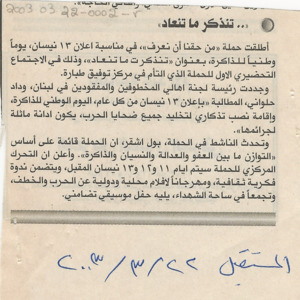 2003 03 22-0002-2
«.. تنذكر ما تنعاد»
أطلقت حملة «من حقنا أن نعرف»، في مناسبة اعلان ١٣ نيسان، يوماً
وطنياً للذاكرة، بعنوان «تنذكر ت ما تنعاد»، وذلك في الاجتماع
التحضيري الاول للحملة الذي التأم في مركز توفيق طبارة.
وجددت رئيسة لجنة اهالي المخطوفين والمفقودين في لبنان، وداد
حلواني، المطالبة «بإعلان ١٣ نيسان من كل عام، اليوم الوطني للذاكرة،
وإقامة نصب تذكاري لتخليد جميع ضحايا الحرب، يكون ادانة ماثلة
لجرائمها».
وتحدث الناشط في الحملة، بول اشقر، ان الحملة قائمة على أساس
«التوازن ما بين العفو والعدالة والنسيان والذاكرة». وأعلن ان التحرك
المركزي للحملة سيتم ايام ١١ و١٢ و١٣ نيسان المقبل، ويتضمن ندوة
فكرية ثقافية، ومهرجاناً لافلام محلية ودولية عن الحرب والخطف،
وتجمعاً في ساحة الشهداء، يليه حفل موسيقي تضامني.
المستقبل ٢٢/٣/٢٠٠٣